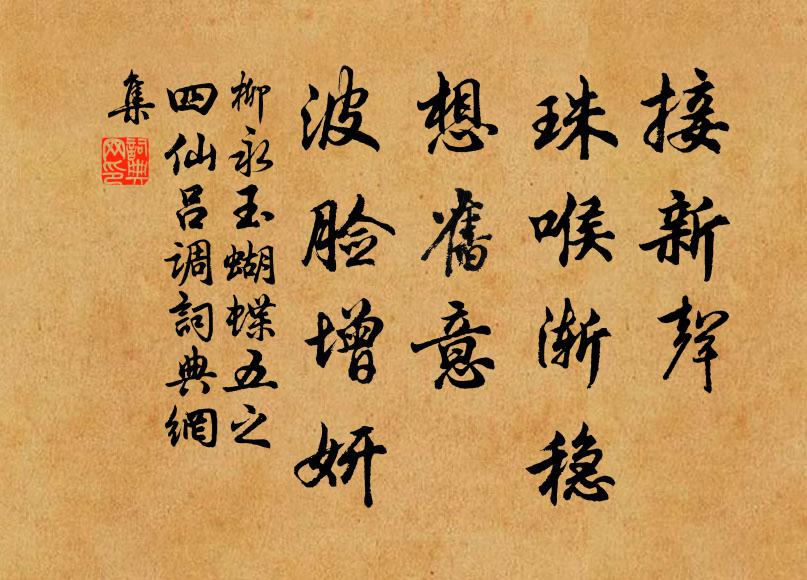 接新声
珠喉渐稳
想舊意
波脸增妍
柳永玉蝴蝶五之
四仙吕调詞典網
集
詞典
网印